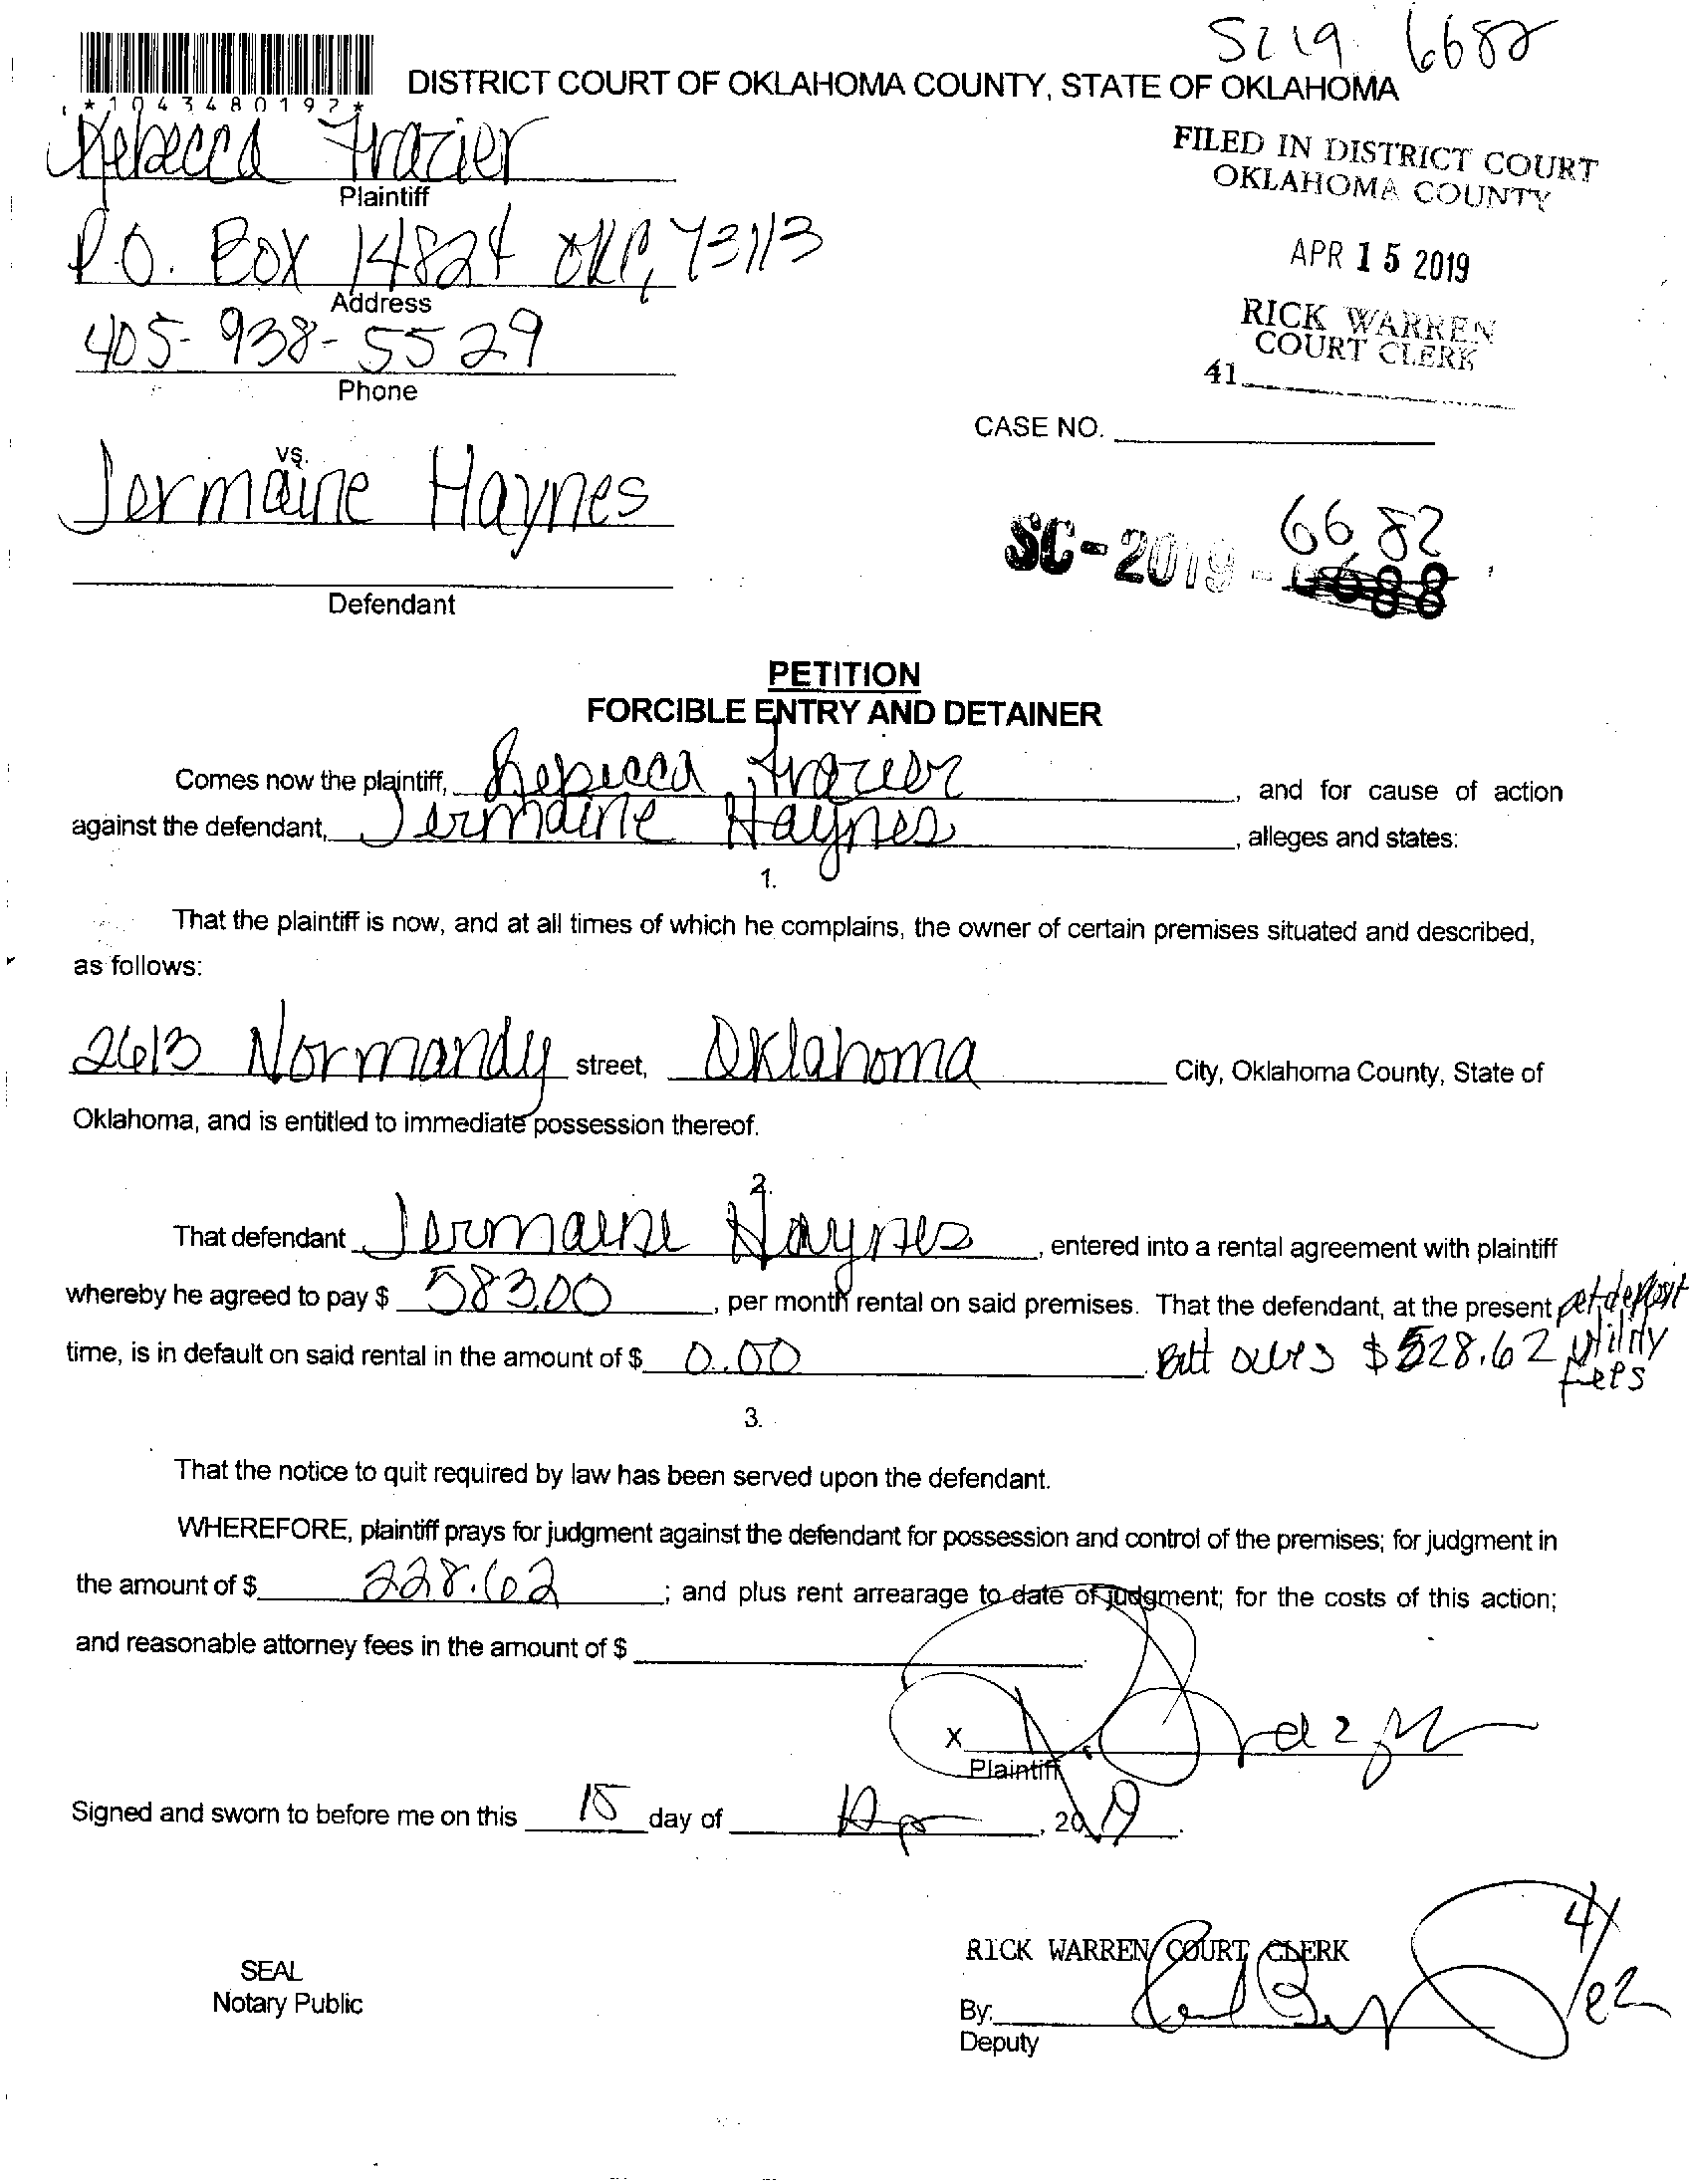 SC19 6682
*1043480197*
DISTRICT COURT OF OKLAHOMA COUNTY, STATE OF OKLAHOMA
Rebecca Frazier
Plaintiff
FILED IN DISTRICT COURT
OKLAHOMA COUNTY
P.O. Box 14824 OKC, 73113
Address
APR 15 2019
405-938-5529
Phone
RICK WARREN
COURT CLERK
41
CASE NO.
vs.
Jermaine Haynes
SC-2019-6682
Defendant
PETITION
FORCIBLE ENTRY AND DETAINER
Comes now the plaintiff, Rebecca Frazier, and for cause of action
against the defendant, Jermaine Haynes, alleges and states:
1.
That the plaintiff is now, and at all times of which he complains, the owner of certain premises situated and described,
as follows:
2613 Normandy street, Oklahoma City, Oklahoma County, State of
Oklahoma, and is entitled to immediate possession thereof.
2.
That defendant Jermaine Haynes, entered into a rental agreement with plaintiff
whereby he agreed to pay $ 583.00, per month rental on said premises. That the defendant, at the present pet deposit
time, is in default on said rental in the amount of $ 0.00. But owes $528.62 utility
fees
3.
That the notice to quit required by law has been served upon the defendant.
WHEREFORE, plaintiff prays for judgment against the defendant for possession and control of the premises; for judgment in
the amount of $ 228.62; and plus rent arrearage to date of judgment; for the costs of this action;
and reasonable attorney fees in the amount of $
X
Plaintiff
Signed and sworn to before me on this 15 day of Apr, 2019.
RICK WARREN COURT CLERK
SEAL
Notary Public
By:
Deputy